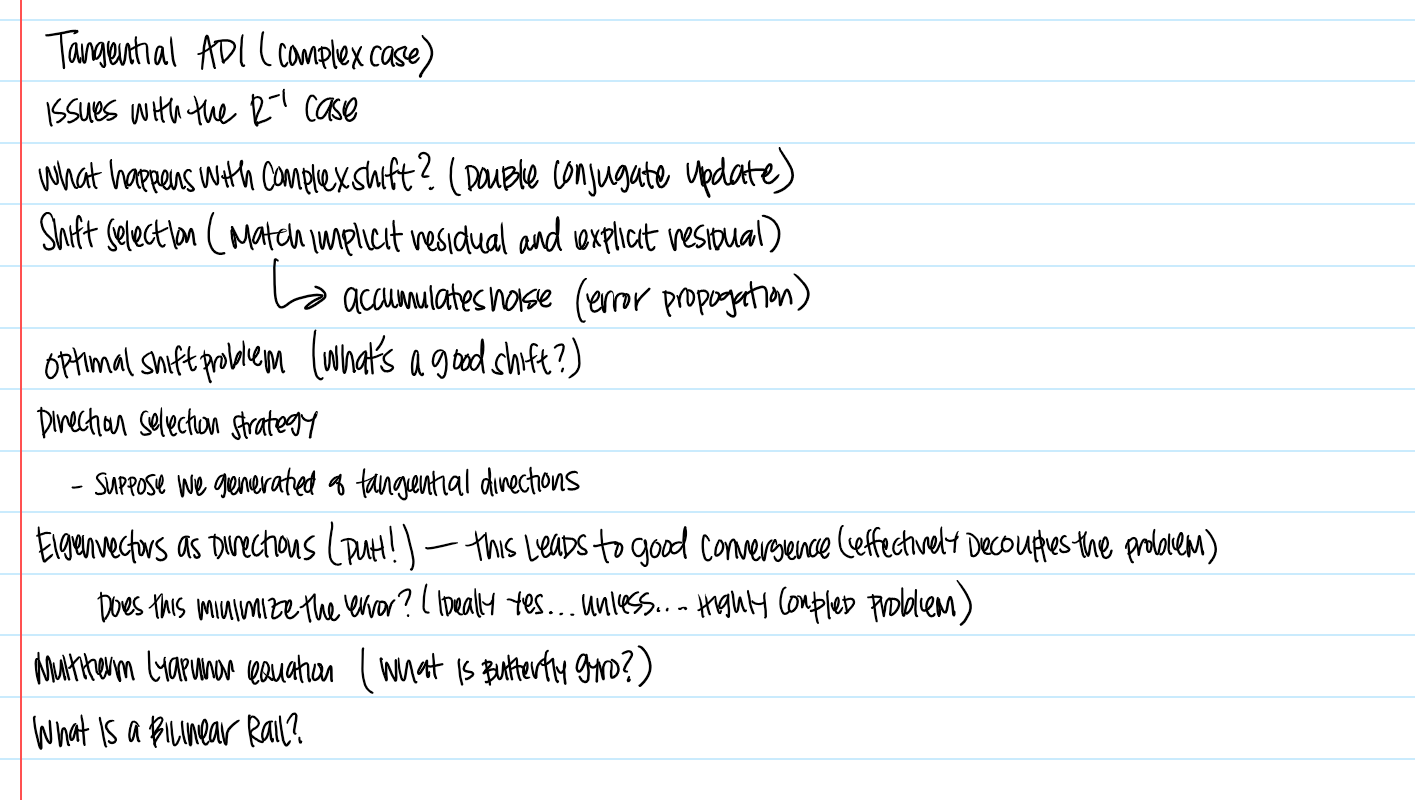 Tangential ADI (complex case)
issues with the R⁻¹ case
what happens with complex shift? (Double conjugate update)
Shift selection (Match implicit residual and explicit residual)
↳ accumulates noise (error propogation)
optimal shift problem (what's a good shift?)
Direction selection strategy
- suppose we generated 8 tangential directions
Eigenvectors as Directions (DUH!) — this LEADS to good convergence (effectively Decouples the problem)
Does this minimize the error? (Ideally yes... unless... Highly Coupled problem)
Multiterm Lyapunov equation (what is Butterfly gyro?)
What is a Bilinear Rail?